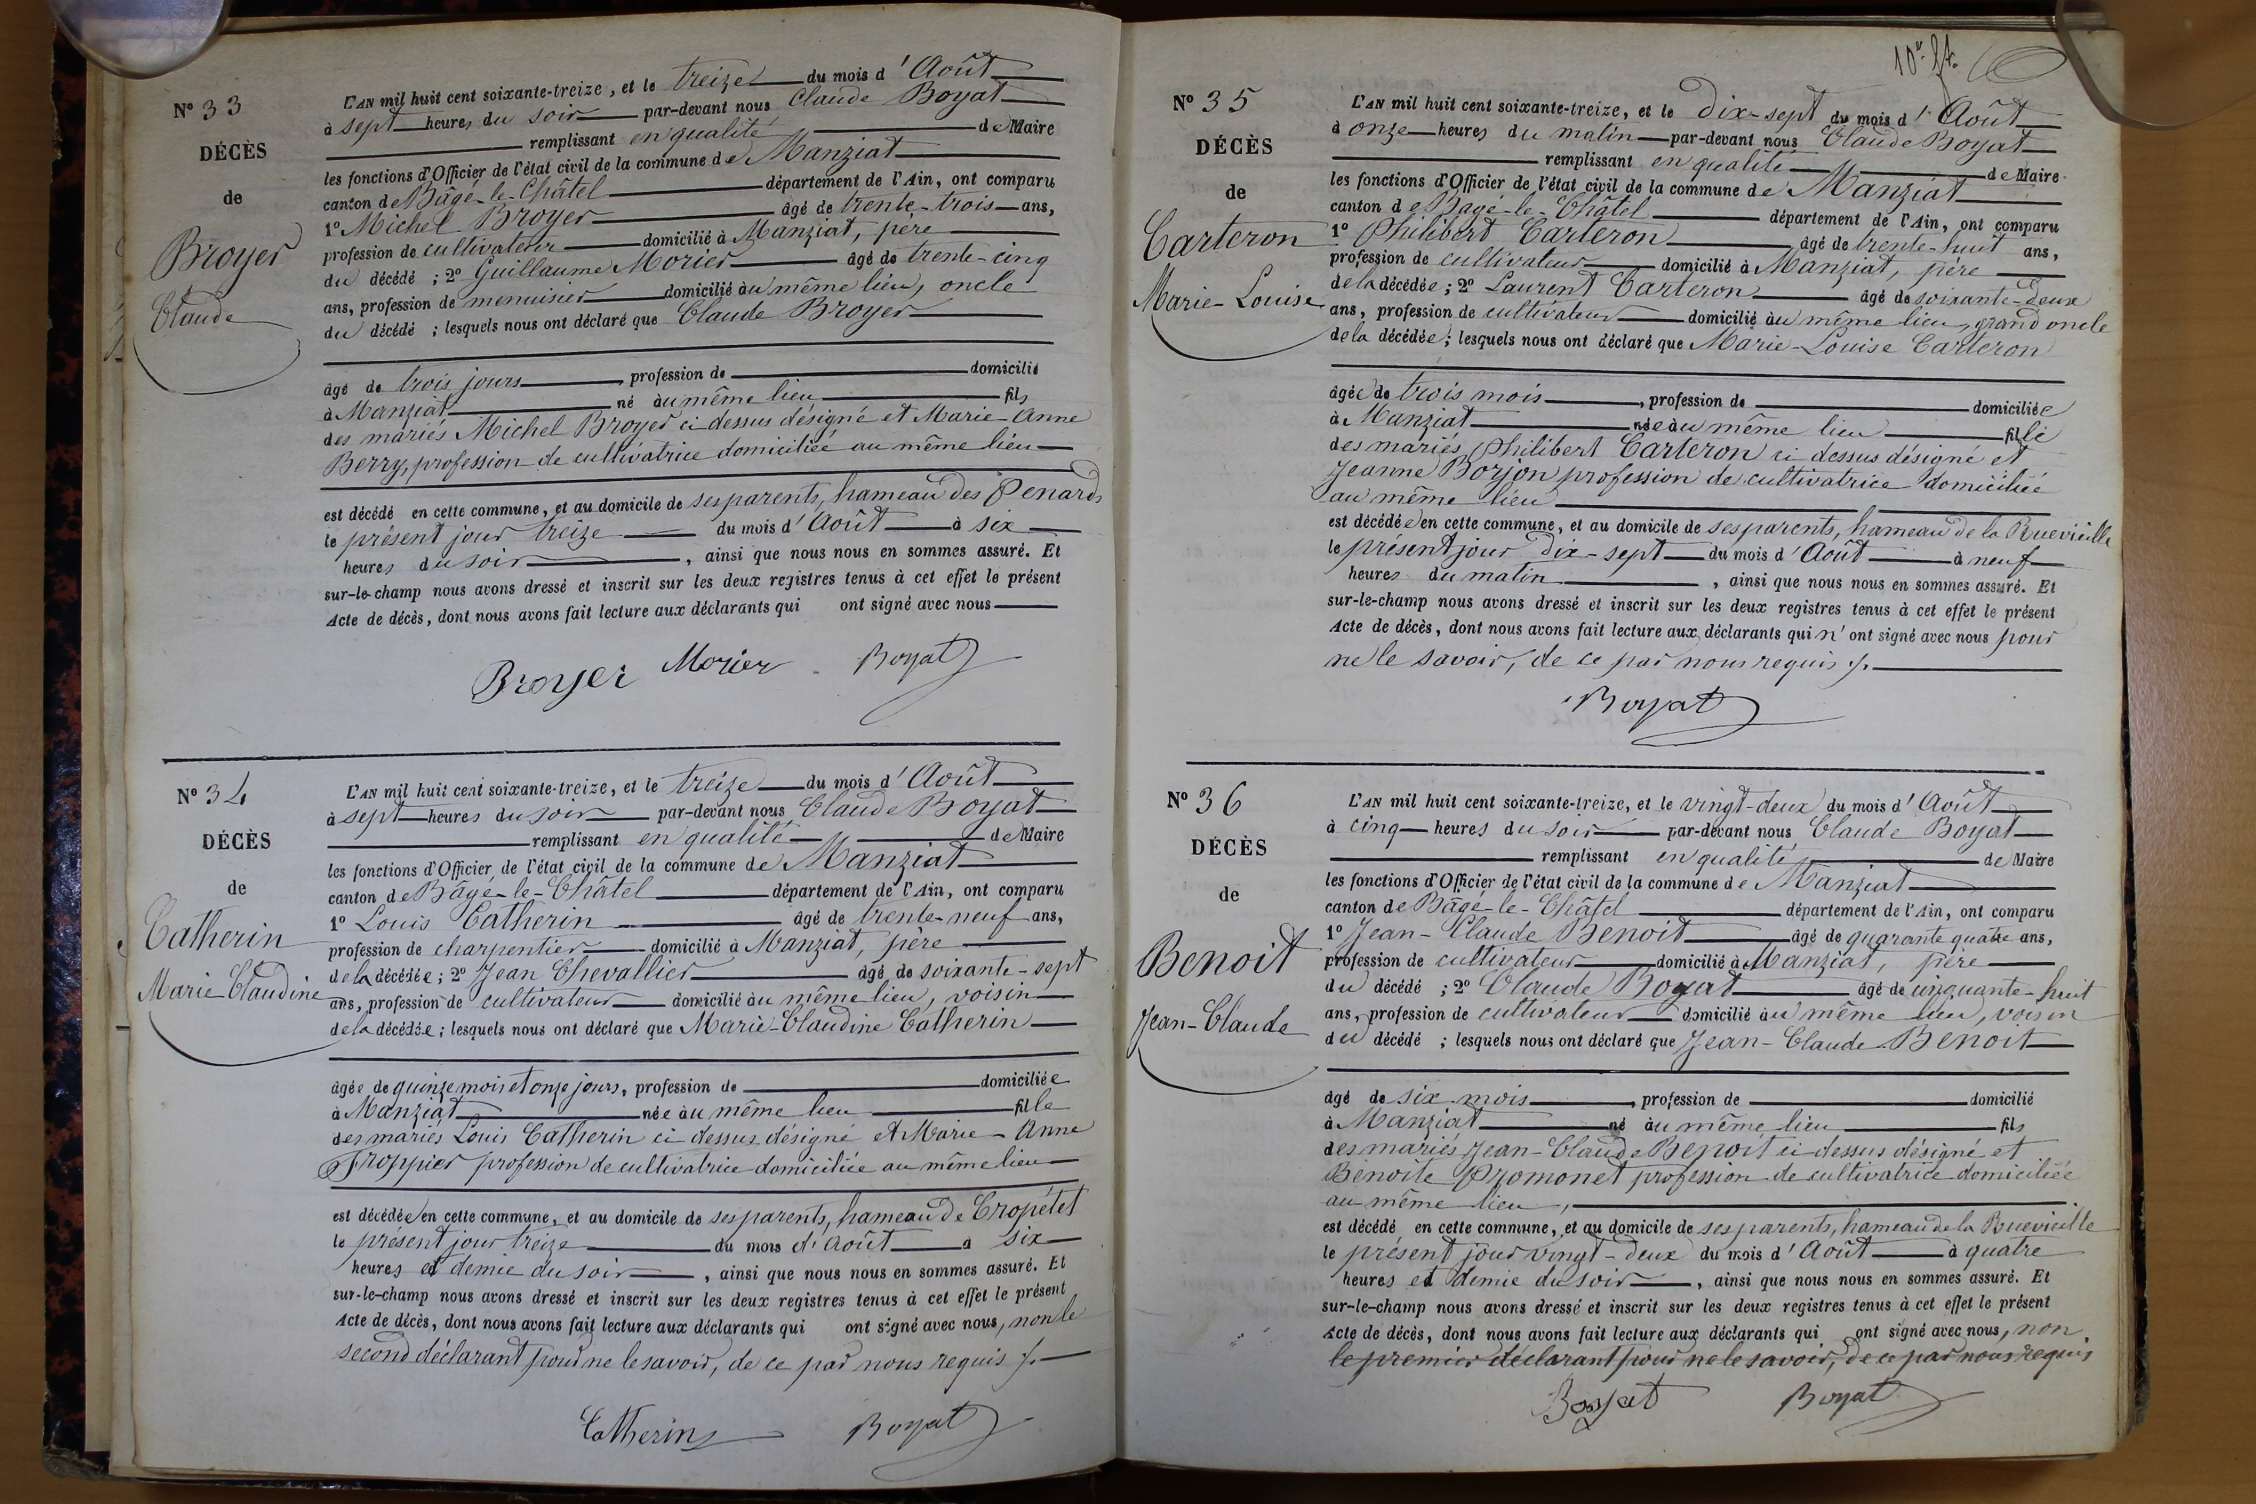 N° 33
DÉCÈS
de
Broyer
Claude
L'AN mil huit cent soixante-treize, et le treize du mois d'Août
à sept heures du soir par-devant nous Claude Boyat
remplissant en qualité de Maire
les fonctions d'Officier de l'état civil de la commune de Manziat
canton de Bâgé-le-Châtel département de l'Ain, ont comparu
1° Michel Broyer âgé de trente-trois ans,
profession de cultivateur domicilié à Manziat, père
du décédé ; 2° Guillaume Morier âgé de trente-cinq
ans, profession de menuisier domicilié au même lieu, oncle
du décédé ; lesquels nous ont déclaré que Claude Broyer
âgé de trois jours, profession de domicilié
à Manziat né au même lieu fils
des mariés Michel Broyer ci dessus désigné et Marie-Anne
Berry, profession de cultivatrice domiciliée au même lieu
est décédé en cette commune, et au domicile de ses parents, hameau des Penards
le présent jour treize du mois d'Août à six
heures du soir, ainsi que nous nous en sommes assuré. Et
sur-le-champ nous avons dressé et inscrit sur les deux registres tenus à cet effet le présent
Acte de décès, dont nous avons fait lecture aux déclarants qui ont signé avec nous
Broyer Morier Boyat
N° 34
DÉCÈS
de
Catherin
Marie Claudine
L'AN mil huit cent soixante-treize, et le treize du mois d'Août
à sept heures du soir par-devant nous Claude Boyat
remplissant en qualité de Maire
les fonctions d'Officier de l'état civil de la commune de Manziat
canton de Bâgé-le-Châtel département de l'Ain, ont comparu
1° Louis Catherin âgé de trente-neuf ans,
profession de charpentier domicilié à Manziat, père
de la décédée ; 2° Jean Chevallier âgé de soixante-sept
ans, profession de cultivateur domicilié au même lieu, voisin
de la décédée ; lesquels nous ont déclaré que Marie-Claudine Catherin
âgée de quinze mois et onze jours, profession de domiciliée
à Manziat née au même lieu fille
des mariés Louis Catherin ci dessus désigné et Marie-Anne
Froppier profession de cultivatrice domiciliée au même lieu
est décédée en cette commune, et au domicile de ses parents, hameau de Cropétet
le présent jour treize du mois d'Août à six
heures et demie du soir, ainsi que nous nous en sommes assuré. Et
sur-le-champ nous avons dressé et inscrit sur les deux registres tenus à cet effet le présent
Acte de décès, dont nous avons fait lecture aux déclarants qui ont signé avec nous, non le
second déclarant pour ne le savoir, de ce par nous requis ./.
Catherin Boyat
10e ft.
N° 35
DÉCÈS
de
Carteron
Marie-Louise
L'AN mil huit cent soixante-treize, et le dix-sept du mois d'Août
à onze heures du matin par-devant nous Claude Boyat
remplissant en qualité de Maire
les fonctions d'Officier de l'état civil de la commune de Manziat
canton de Bagé-le-Châtel département de l'Ain, ont comparu
1° Philibert Carteron âgé de trente-huit ans,
profession de cultivateur domicilié à Manziat, père
de la décédée ; 2° Laurent Carteron âgé de soixante-deux
ans, profession de cultivateur domicilié au même lieu, grand oncle
de la décédée ; lesquels nous ont déclaré que Marie-Louise Carteron
âgée de trois mois, profession de domiciliée
à Manziat née au même lieu fille
des mariés Philibert Carteron ci dessus désigné et
Jeanne Borjon profession de cultivatrice domiciliée
au même lieu
est décédée en cette commune, et au domicile de ses parents, hameau de la Ruevieille
le présent jour dix-sept du mois d'Août à neuf
heures du matin, ainsi que nous nous en sommes assuré. Et
sur-le-champ nous avons dressé et inscrit sur les deux registres tenus à cet effet le présent
Acte de décès, dont nous avons fait lecture aux déclarants qui n'ont signé avec nous pour
ne le savoir, de ce par nous requis ./.
Boyat
N° 36
DÉCÈS
de
Benoit
Jean-Claude
L'AN mil huit cent soixante-treize, et le vingt-deux du mois d'Août
à cinq heures du soir par-devant nous Claude Boyat
remplissant en qualité de Maire
les fonctions d'Officier de l'état civil de la commune de Manziat
canton de Bâgé-le-Châtel département de l'Ain, ont comparu
1° Jean-Claude Benoit âgé de quarante quatre ans,
profession de cultivateur domicilié à Manziat, père
du décédé ; 2° Claude Boyat âgé de cinquante-huit
ans, profession de cultivateur domicilié au même lieu, voisin
du décédé ; lesquels nous ont déclaré que Jean-Claude Benoit
âgé de six mois, profession de domicilié
à Manziat né au même lieu fils
des mariés Jean-Claude Benoit ci dessus désigné et
Benoite Promonet profession de cultivatrice domiciliée
au même lieu,
est décédé en cette commune, et au domicile de ses parents, hameau de la Ruevieille
le présent jour vingt-deux du mois d'Août à quatre
heures et demie du soir, ainsi que nous nous en sommes assuré. Et
sur-le-champ nous avons dressé et inscrit sur les deux registres tenus à cet effet le présent
Acte de décès, dont nous avons fait lecture aux déclarants qui ont signé avec nous, non
le premier déclarant pour ne le savoir, de ce par nous requis
Boyat Boyat